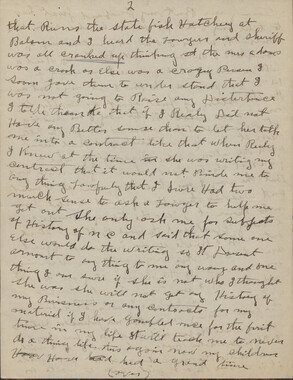 2
that Runs the state fish Hatchery at
Balsam and I heard the Lawyer and sheriff
was all cranked up thinking at the
was a crook or else was a crazy Person I
Soon gave them to under stand that I
was not going to Raise any Disturbance
I told them do that if I Realy Did not
Have any Better sense than to let her talk
me into a contract like that when Realy
I Knew at the time she was writing my
contract that it would not Binde me to
any thing Lawfuly that I Sure Had two
much sense to ask a Lawyer to help me
get out She only ask me for subjects
of History of N C and said that some one
else would do the writing so It Dosent
amount to any thing to me any way and one
thing I am sure if she is not who I thought
she was she will not get any History of
my or any contacts for my
material if I have gambled once for the first
time in my life It will teach me to never
do a thing like this again now my children
Have had a great time
(over)